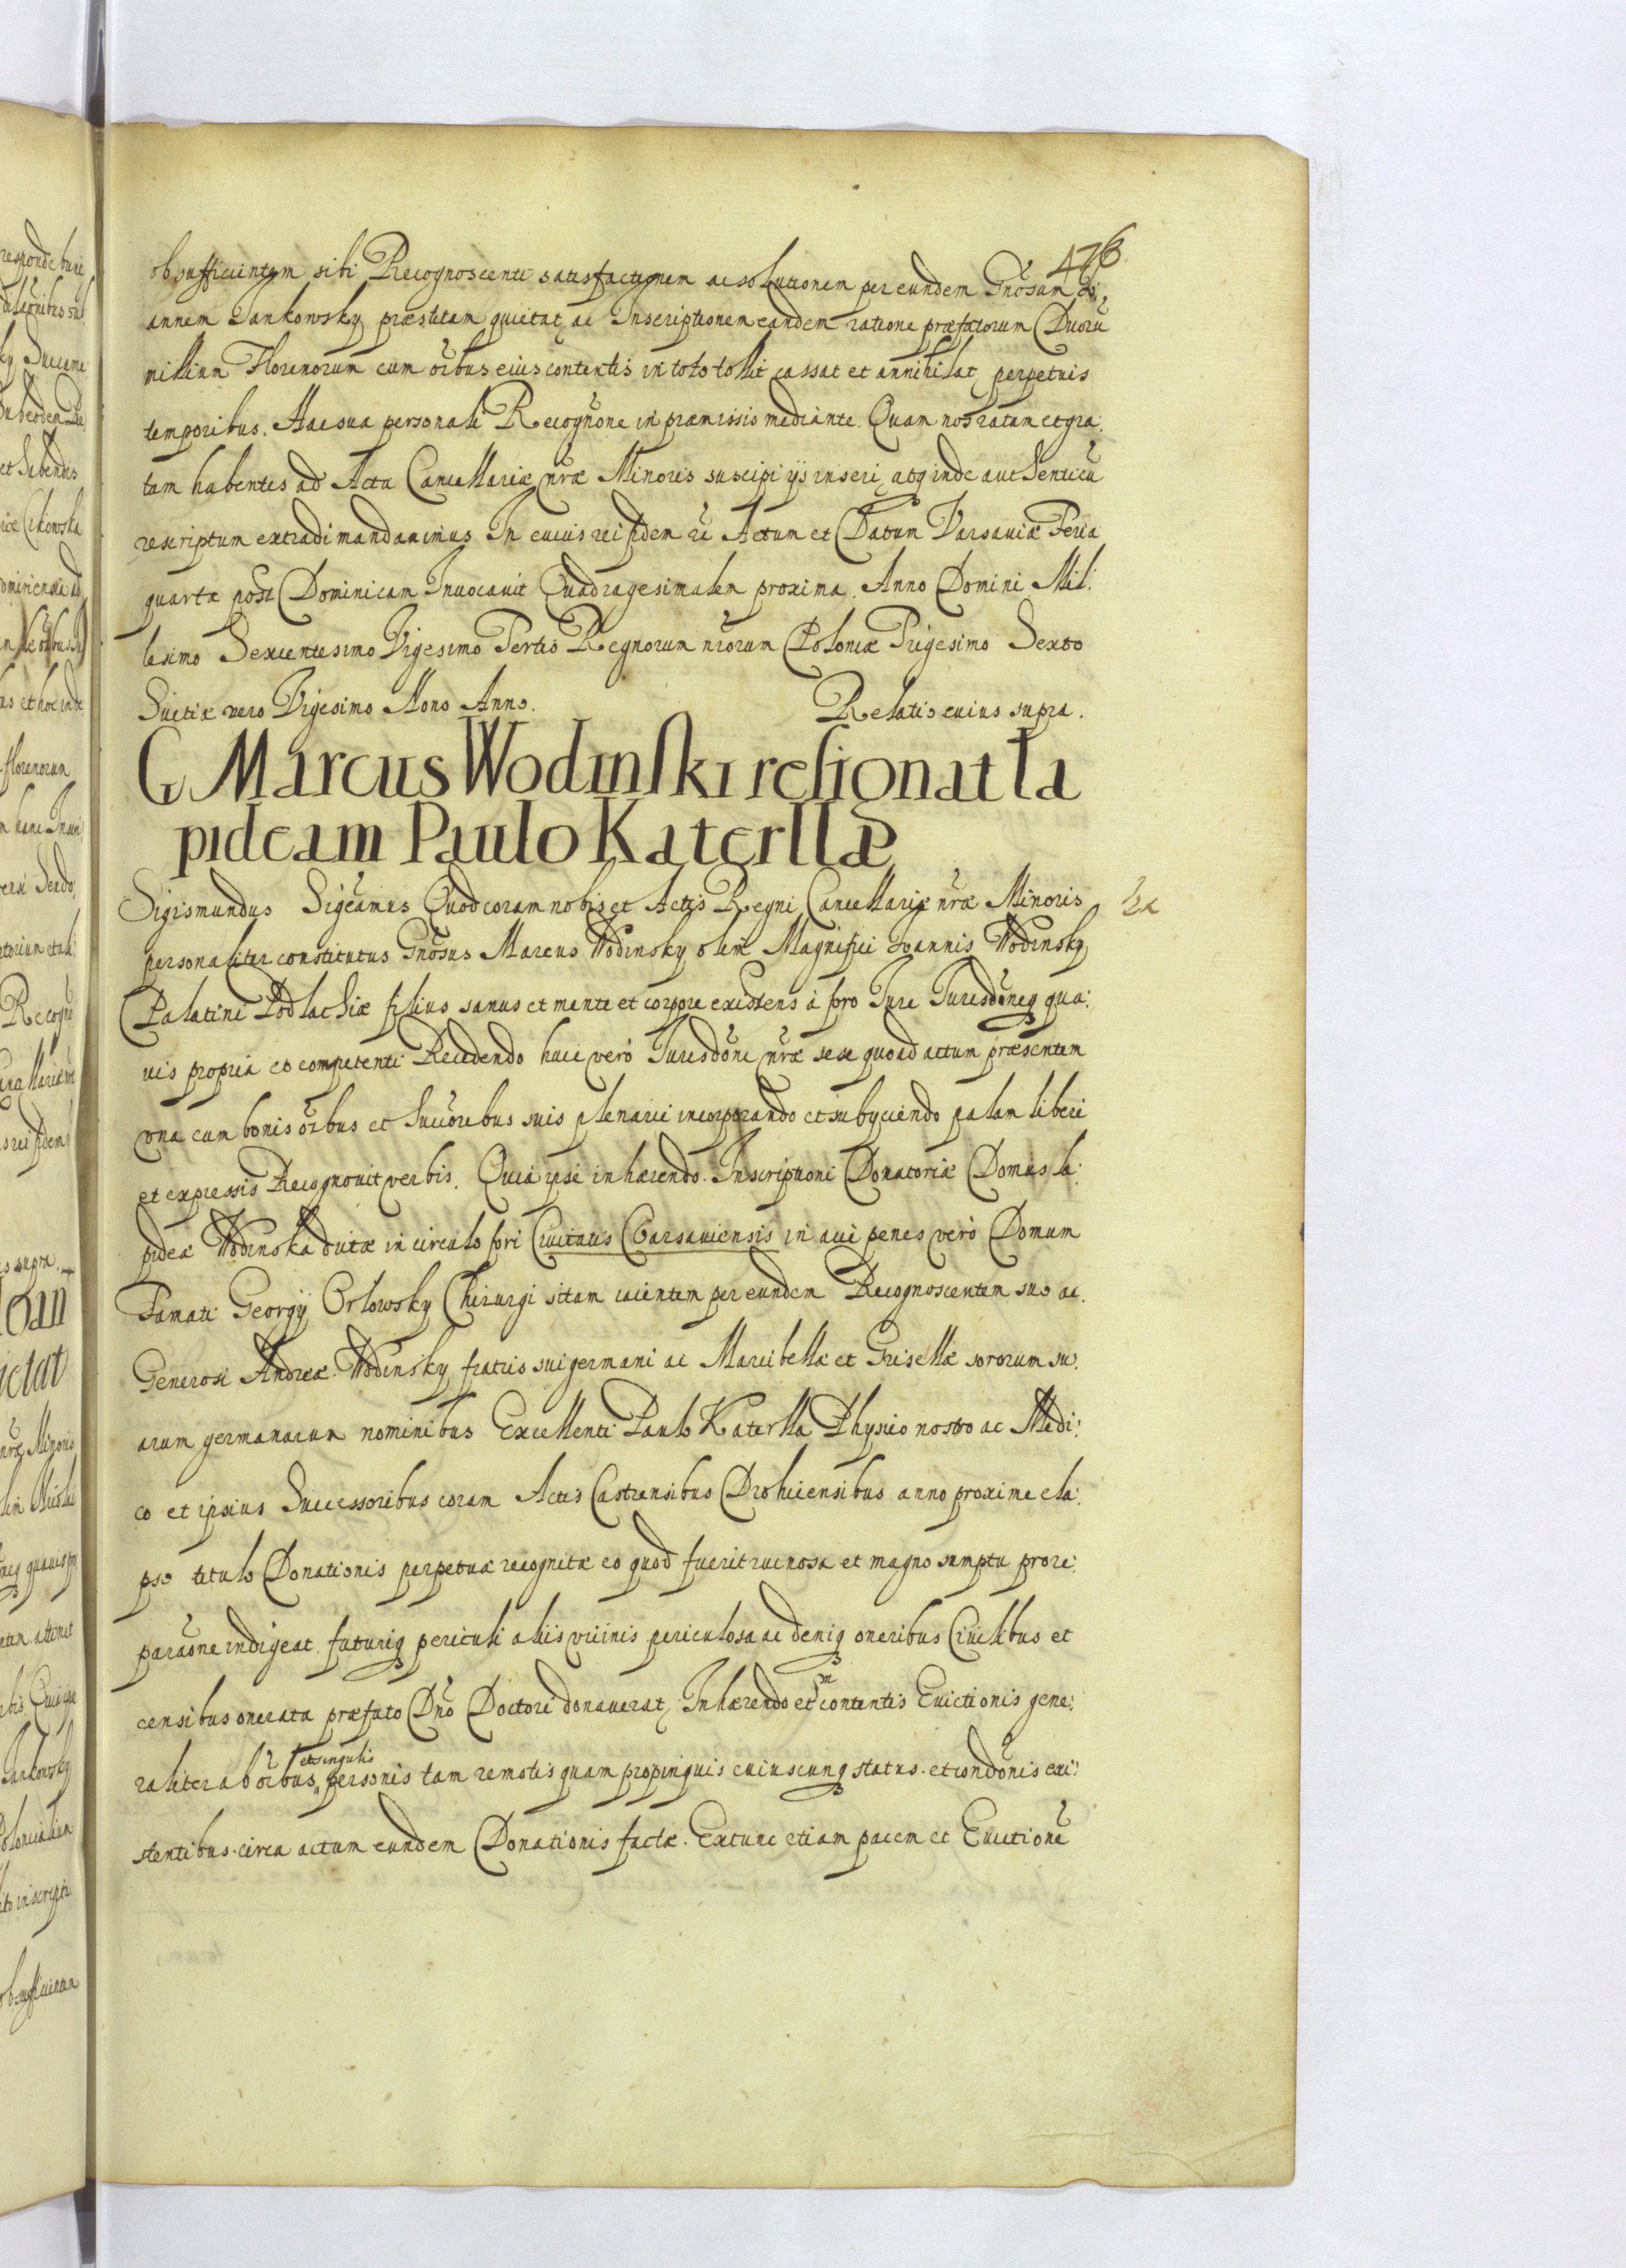 476
ob sufficientem sibi Recognoscenti satisfactionem ac solutionem per eundem Gnosum Io,
annem Jankowsky præstitam quietat, ac Inscriptionem eandem ratione præfatorum Duorũ
millium Florenorum cum oĩbus eius contentis in toto tollit cassat et annihilat, perpetuis
temporibus. Hac sua personali Recognõne in præmissis mediante. Quam nos ratam et gra:
tam habentes ad Acta Cancellariæ nr̃æ Minoris suscipi ijs inseri, atq inde authenticũ
rescriptum extradi mandavimus. In cuius rei fidem &c Actum et Datum Varsaviæ Feria
quarta post Dominicam Invocavit Quadragesimalem proxima. Anno Domini Mil:
lesimo Sexcentesimo Vigesimo Tertio Regnorum nrorum Poloniæ Trigesimo Sexto
Suetiæ vero Vigesimo Nono Anno. Relatio cuius supra.
G Marcus Wodinski resignat la
pideam Paulo Katerllæ
Sigismundus Sigcamus Quod coram nobis et Actis Regni Cancellariæ nr̃æ Minoris
personaliter constitutus Gnosus Marcus Wodinsky olim Magnifici Ioannis Wodinsky
Palatini Podlachiæ filius sanus et mente et corpore existens à foro Jure Jurisdõneq qua:
vis propria et competenti Recedendo huic verò Jurisdõni nr̃æ sese quoad actum præsentem
vna cum bonis oĩbus et Succoribus suis plenarie incorporando et subijciendo palam liberè
et expressis Recognovit verbis. Quia ipse inhærendo Inscriptioni Donatoriæ Domus la:
pideæ Wodinska dictæ in circulo fori Civitatis Varsaviensis in acie penes verò Domum
Famati Georgij Orlowsky Chirurgi sitam iacentem per eundem Recognoscentem suo ac
Generosi Andreæ Wodinsky fratris sui germani ac Maribellæ et Grisellæ sororum su:
arum germanarum nominibus Excellenti Paulo Katerlla Physico nostro ac Medi:
co et ipsius Successoribus coram Actis Castrensibus Drohicensibus anno proxime ela:
pso titulo Donationis perpetuæ recognitæ eo quod fuerit ruinosa et magno sumptu pro re:
paraõne indigeat. futuriq periculi aliis vicinis periculosa ac deniq oneribus Civilibus et
censibus onerata præfato Dno Doctori donaverat, Inhærendo et in contentis Evictionis gene:
raliter ab oĩbus et singulis personis tam remotis quam propinquis cuiuscunq status et condõnis exi:
stentibus circa actum eundem Donationis factæ. Extunc etiam pacem et Evictionẽ